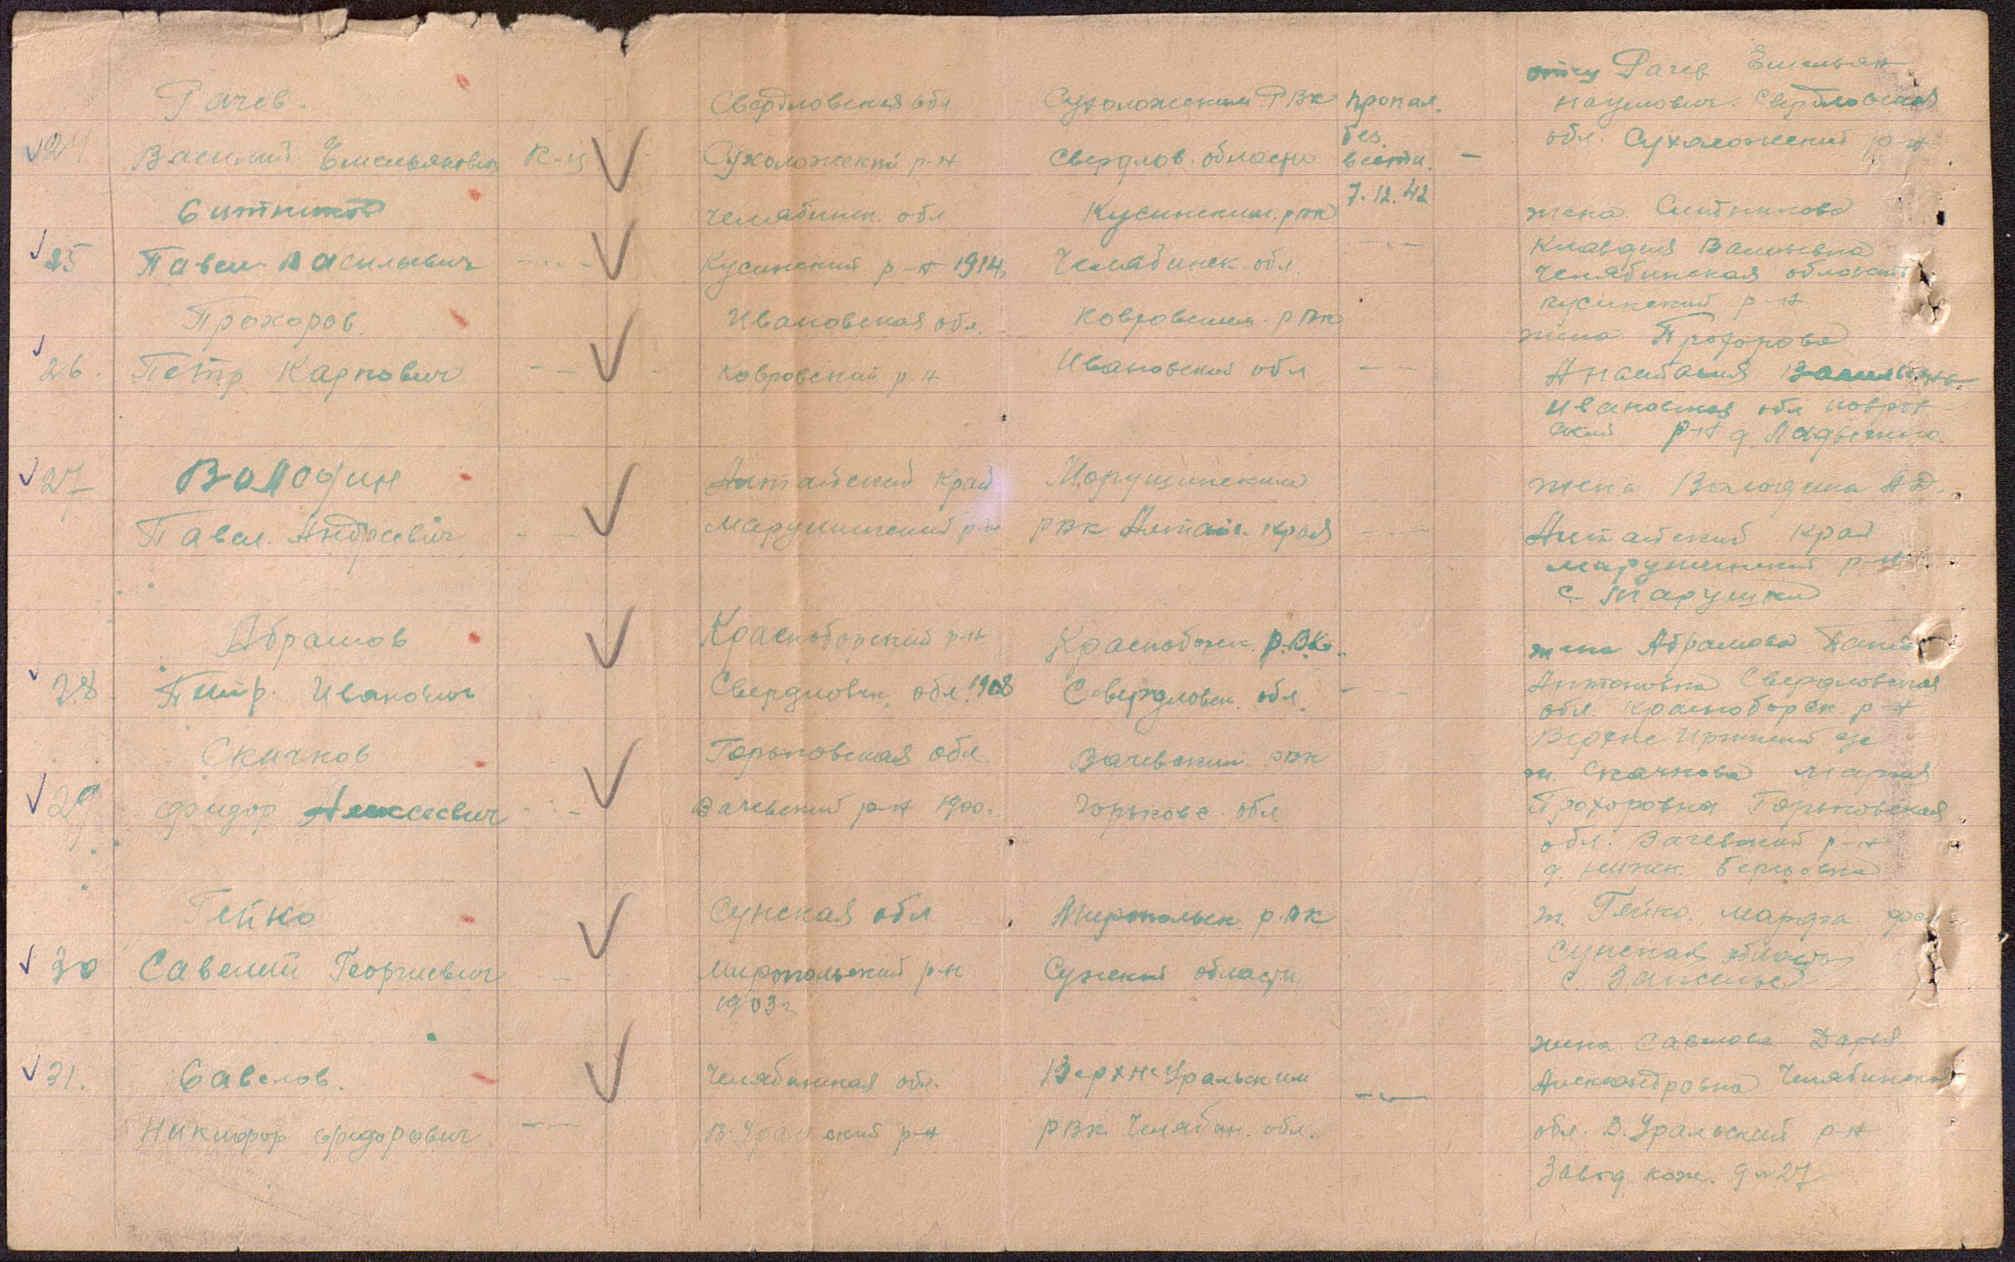 Рачев.
24 Василий Емельянович К-ц
Свердловская обл
Сухоложский р-н
Сухоложским РВК
Свердлов. области
пропал.
без
вести. –
7.12.42
отец Рачев Емельян
Наумович. Свердловская
обл. Сухоложский р-н
Ситников
25 Павел Васильевич -- --
Челябинск. обл
Кусинский р-н 1914
Кусинским. рвк
Челябинск. обл.
жена Ситникова
Клавдия
Челябинская область
Кусинский р-н
Прохоров
26. Петр Карпович -- --
Ивановская обл.
Ковровский р-н
Ковровским РВК
Ивановской обл -- --
жена Прохорова
Анастасия
Ивановская обл Ковров
ский р-н д.
27 Володин
Павел. Андреевич -- --
Алтайский край
Марушинский р-н
Марушинским
РВК Алтайс. края -- --
жена Володина А.Д.
Алтайский край
Марушинский р-н
с Марушка
Абрамов
28 Петр. Иванович
Красноборский р-н
Свердловск. обл. 1908
р.В.К.
Свердловск. обл. -- --
жена Абрамова
Антоновна Свердловская
обл. Красноборск р-н
Верхне
Скачков
29 Федор Алексеевич -- --
Горьковская обл
Вачевский р-н 1900.
Вачевским РВК
Горьковс. обл
ж. Скачкова Мария
Прохоровна Горьковская
обл. Вачевский р-н
д.
Гейко
30 Савелий Георгиевич --
Сумская обл
Миропольский р-н
1903г
Миропольск. р.вк
Сумской области
ж. Гейко Марфа
Сумская область
с.
31. Савелов.
Никифор Федорович -- --
Челябинская обл.
В-Уральский р-н
Верхнеуральским
РВК Челябин. обл. -- --
жена Савелова Дарья
Александровна Челябинская
обл. В. Уральский р-н
Завод кож. д № 27